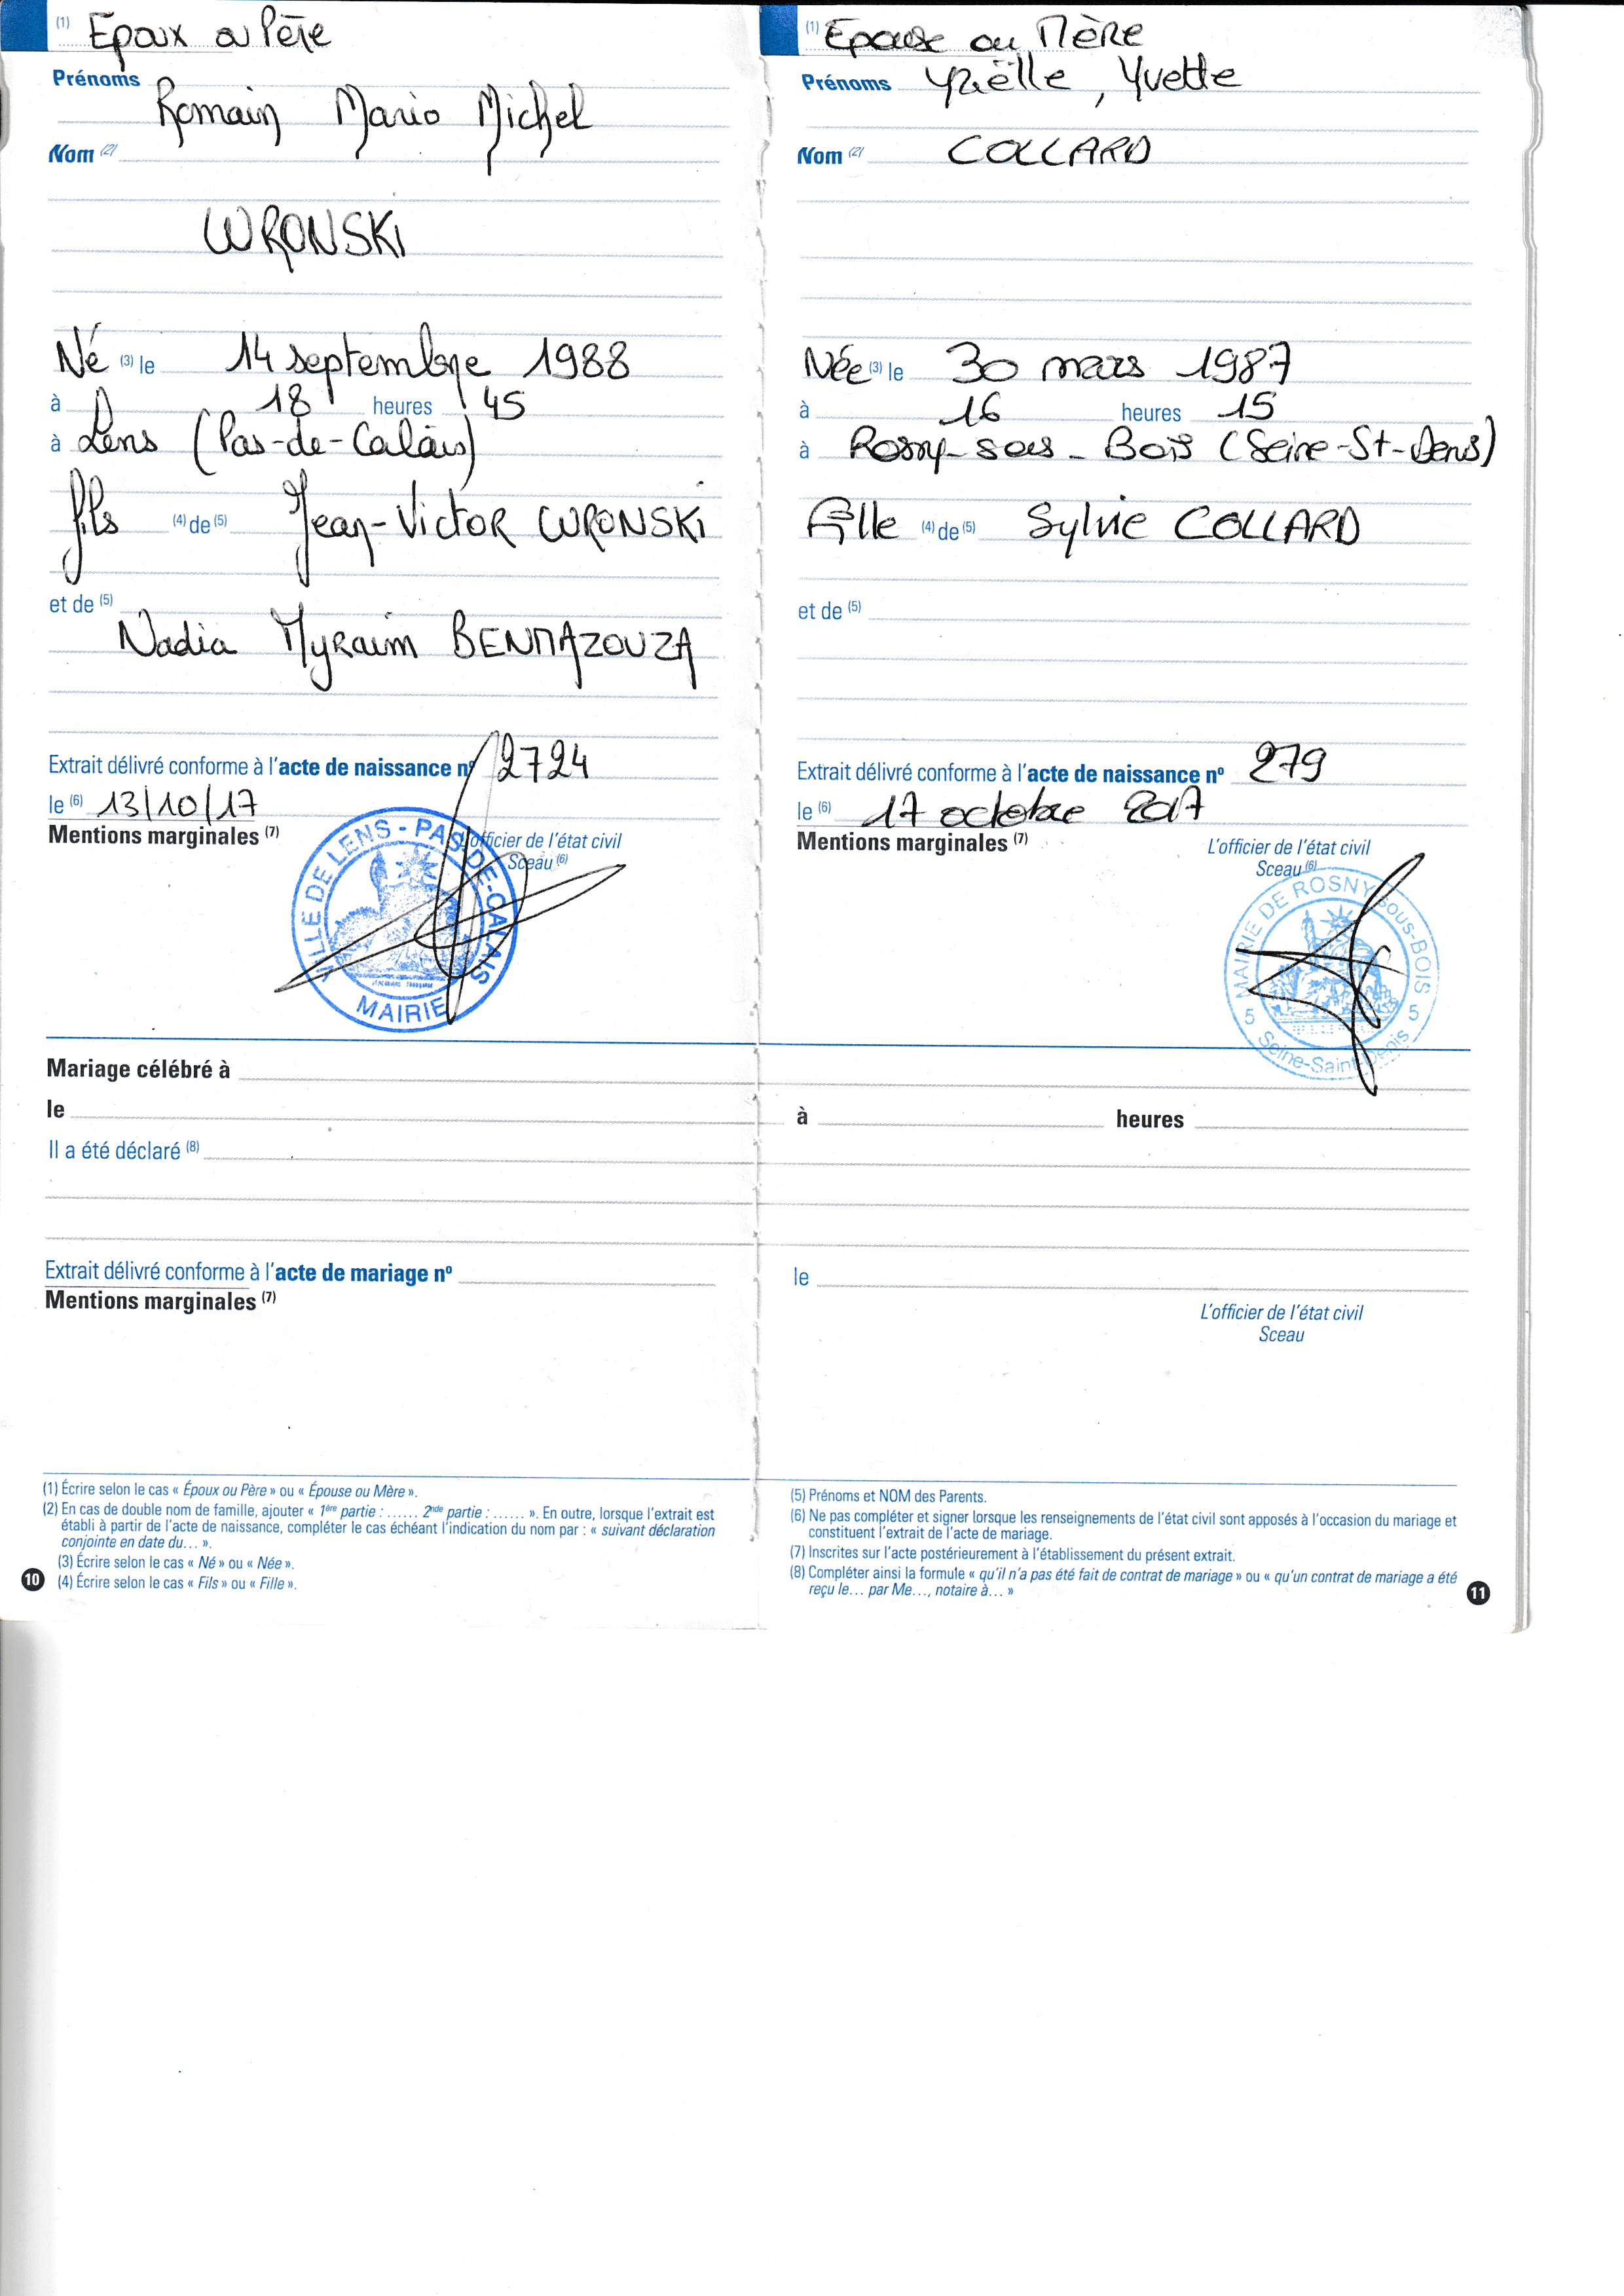 (1) Epoux ou Père
Prénoms
Romain Mario Michel
Nom (2)
WRONSKI
Né (3) le 14 septembre 1988
à 18 heures 45
à Lens (Pas-de-Calais)
fils (4) de (5) Jean-Victor WRONSKI
et de (5)
Nadia Myraim BENMAZOUZA
Extrait délivré conforme à l'acte de naissance nº 2724
le (6) 13/10/17
Mentions marginales (7)
L'officier de l'état civil
Sceau (6)
VILLE DE LENS - PAS-DE-CALAIS
MAIRIE
(1) Epouse ou Mère
Prénoms Yaëlle, Yvette
Nom (2) COLLARD
Née (3) le 30 mars 1987
à 16 heures 15
à Rosny-sous-Bois (Seine-St-Denis)
Fille (4) de (5) Sylvie COLLARD
et de (5)
Extrait délivré conforme à l'acte de naissance nº 279
le (6) 17 octobre 2017
Mentions marginales (7)
L'officier de l'état civil
Sceau (6)
MAIRIE DE ROSNY-sous-BOIS
5 Seine-Saint-Denis 5
Mariage célébré à
le à heures
Il a été déclaré (8)
Extrait délivré conforme à l'acte de mariage nº le
Mentions marginales (7)
L'officier de l'état civil
Sceau
(1) Écrire selon le cas « Époux ou Père » ou « Épouse ou Mère ».
(2) En cas de double nom de famille, ajouter « 1ère partie : ...... 2nde partie : ...... ». En outre, lorsque l'extrait est
établi à partir de l'acte de naissance, compléter le cas échéant l'indication du nom par : « suivant déclaration
conjointe en date du... ».
(3) Écrire selon le cas « Né » ou « Née ».
(4) Écrire selon le cas « Fils » ou « Fille ».
10
(5) Prénoms et NOM des Parents.
(6) Ne pas compléter et signer lorsque les renseignements de l'état civil sont apposés à l'occasion du mariage et
constituent l'extrait de l'acte de mariage.
(7) Inscrites sur l'acte postérieurement à l'établissement du présent extrait.
(8) Compléter ainsi la formule « qu'il n'a pas été fait de contrat de mariage » ou « qu'un contrat de mariage a été
reçu le... par Me..., notaire à... »
11